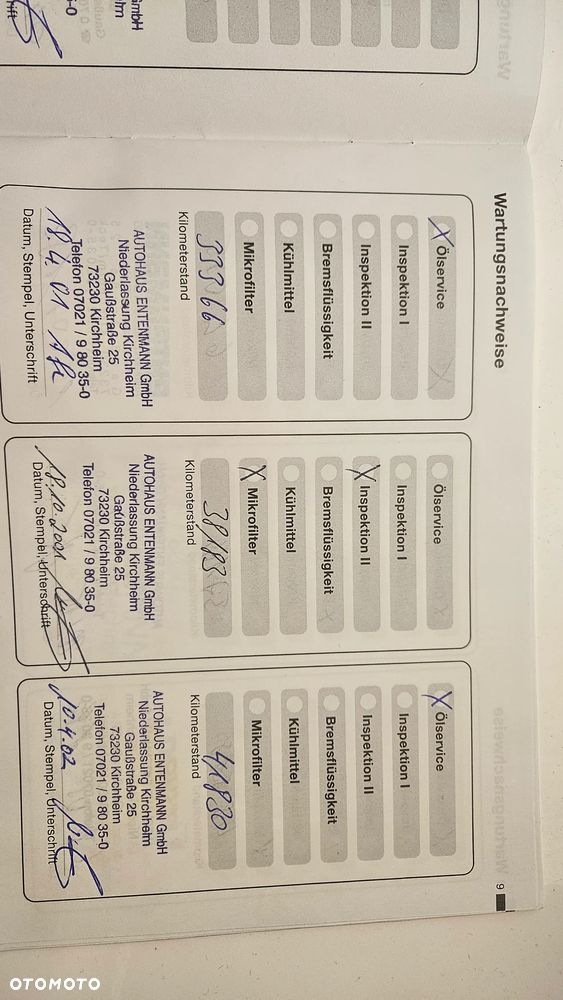 Wartungsnachweise
X Ölservice
Inspektion I
Inspektion II
Bremsflüssigkeit
Kühlmittel
Mikrofilter
33966
Kilometerstand
AUTOHAUS ENTENMANN GmbH
Niederlassung Kirchheim
Gaußstraße 25
73230 Kirchheim
Telefon 07021 / 9 80 35-0
18.4.01
Datum, Stempel, Unterschrift
Ölservice
Inspektion I
X Inspektion II
Bremsflüssigkeit
Kühlmittel
X Mikrofilter
38183
Kilometerstand
AUTOHAUS ENTENMANN GmbH
Niederlassung Kirchheim
Gaußstraße 25
73230 Kirchheim
Telefon 07021 / 9 80 35-0
18.10.2001
Datum, Stempel, Unterschrift
X Ölservice
Inspektion I
Inspektion II
Bremsflüssigkeit
Kühlmittel
Mikrofilter
41830
Kilometerstand
AUTOHAUS ENTENMANN GmbH
Niederlassung Kirchheim
Gaußstraße 25
73230 Kirchheim
Telefon 07021 / 9 80 35-0
10.4.02
Datum, Stempel, Unterschrift
9
OTOMOTO